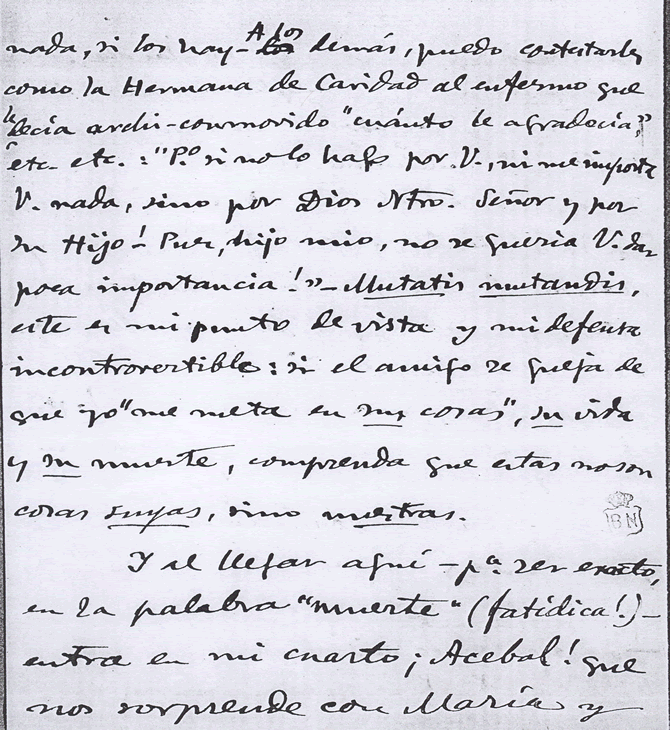 nada, si los hay – A los demás, puedo contestarles
como la Hermana de Caridad al enfermo que
le decía archi-conmovido "cuánto le agradecía,"
etc. etc.: "P.º si no lo hago por V., ni me importa
V. nada, sino por Dios Ntro. Señor y por
su Hijo! Pues, hijo mio, no se quería V. dar
poca importancia!" – Mutatis mutandis,
este es mi punto de vista y mi defensa
incontrovertible: si el amigo se queja de
que yo "me meta en sus cosas", su vida
y su muerte, comprenda que estas no son
cosas suyas, sino nuestras.
BN
Y al llegar aquí – p.ª ser exacto,
en la palabra "muerte" (fatídica!) –
entra en mi cuarto ¡Acebal! que
nos sorprende con María y